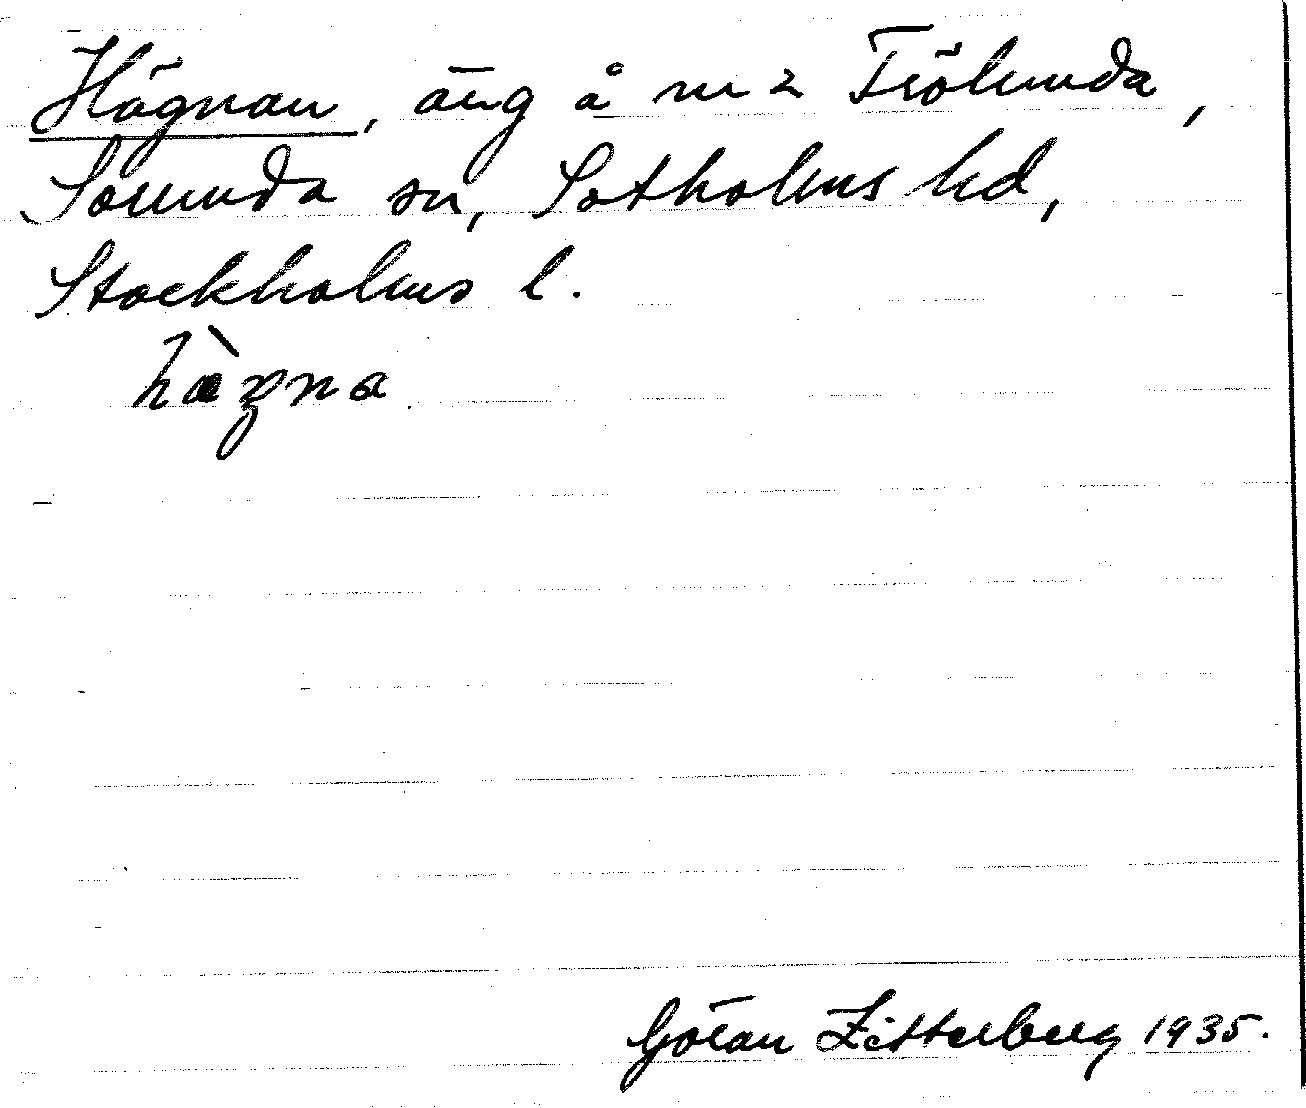 Hägnan, äng å nr 2 Trölunda,
Sorunda sn, Sotholms hd,
Stockholms l.
hàgna
Göran Zetterberg 1935.